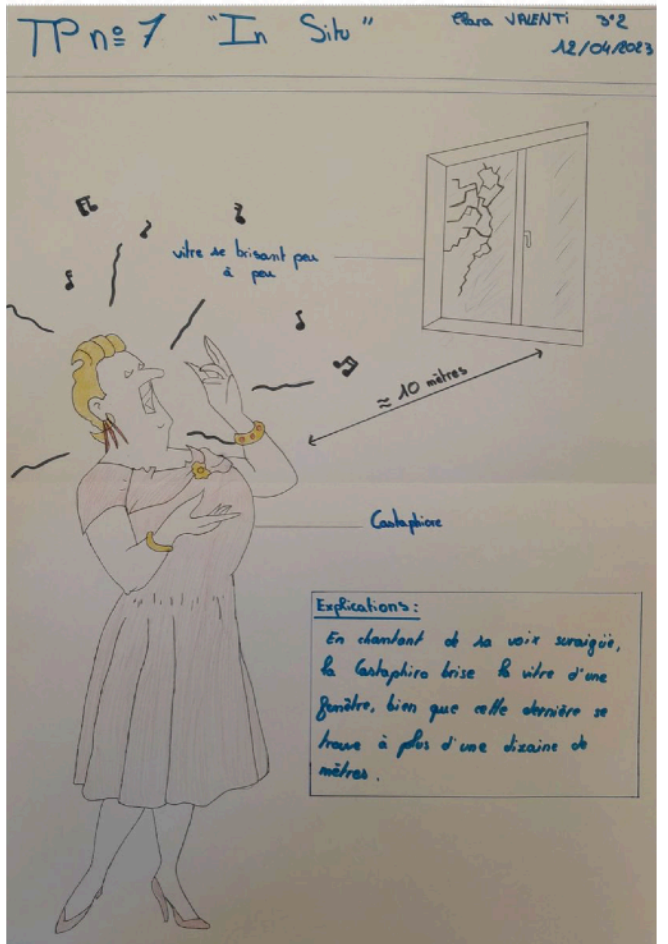 TP n° 7 "In Situ"
Clara VALENTI 3°2
12/04/2023
vitre se brisant peu
à peu
≈ 10 mètres
Castaphiore
Explications :
En chantant de sa voix suraigüe,
la Castaphiro brise la vitre d'une
fenêtre, bien que cette dernière se
trouve à plus d'une dizaine de
mètres.